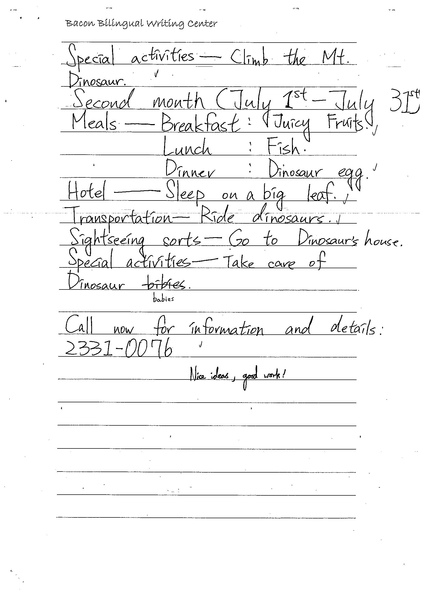 Bacon Bilingual Writing Center
Special activities — Climb the Mt.
Dinosaur.
Second month (July 1st – July 31st
Meals — Breakfast : Juicy Fruits.
Lunch : Fish.
Dinner : Dinosaur egg.
Hotel — Sleep on a big leaf.
Transportation — Ride dinosaurs.
Sightseeing sorts — Go to Dinosaur's house.
Special activities — Take care of
Dinosaur bibies.
babies
Call now for information and details:
2331-0076
Nice ideas, good work!